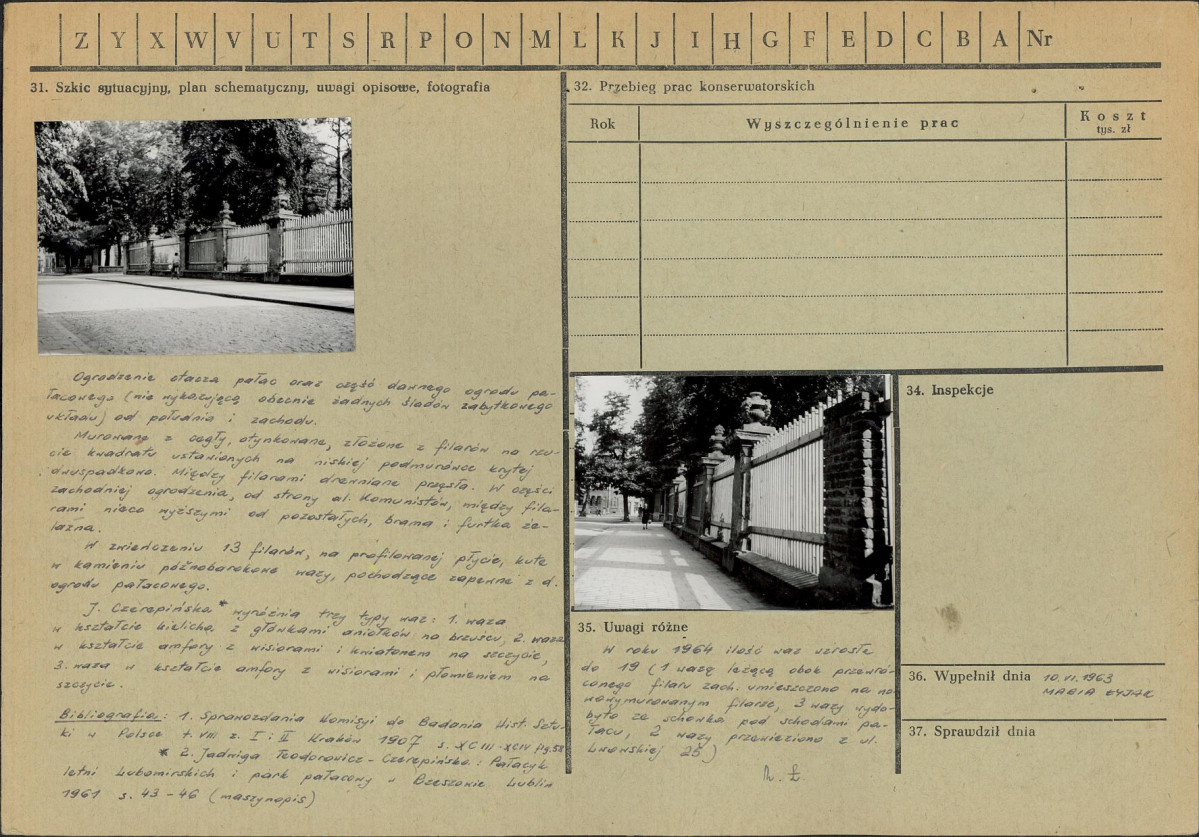 Z Y X W V U T S R P O N M L K J I H G F E D C B A Nr
31. Szkic sytuacyjny, plan schematyczny, uwagi opisowe, fotografia
Ogrodzenie otacza pałac oraz część dawnego ogrodu pa-
łacowego (nie wykazującą obecnie żadnych śladów zabytkowego
układu) od południa i zachodu.
Murowane z cegły, otynkowane, złożone z filarów na rzu-
cie kwadratu ustawionych na niskiej podmurówce krytej
dwuspadkowo. Między filarami drewniane przęsła. W części
zachodniej ogrodzenia, od strony al. Komunistów, między fila-
rami nieco wyższymi od pozostałych, brama i furtka że-
lazna.
W zwieńczeniu 13 filarów, na profilowanej płycie, kute
w kamieniu późnobarokowe wazy, pochodzące zapewne z d.
ogrodu pałacowego.
J. Czerepińska * wyróżnia trzy typy waz: 1. waza
w kształcie kielicha z główkami aniołków na brzuścu, 2. waza
w kształcie amfory z wisiorami i kwiatonem na szczycie,
3. waza w kształcie amfory z wisiorami i płomieniem na
szczycie.
Bibliografia: 1. Sprawozdania Komisyi do Badania Hist. Sztu-
ki w Polsce t. VIII z. I i II Kraków 1907 s. XCIII-XCIV fig. 58
* 2. Jadwiga Teodorowicz-Czerepińska: Pałacyk
letni Lubomirskich i park pałacowy w Rzeszowie Lublin
1961 s. 43-46 (maszynopis)
32. Przebieg prac konserwatorskich
Rok Wyszczególnienie prac Koszt
tys. zł
35. Uwagi różne
W roku 1964 ilość waz wzrosła
do 19 (1 wazę leżącą obok przewró-
conego filaru zach. umieszczono na no-
wowymurowanym filarze, 3 wazy wydo-
byto ze schowka pod schodami pa-
łacu, 2 wazy przewieziono z ul.
Lwowskiej 25)
34. Inspekcje
36. Wypełnił dnia 10.VI.1963
MARIA
37. Sprawdził dnia